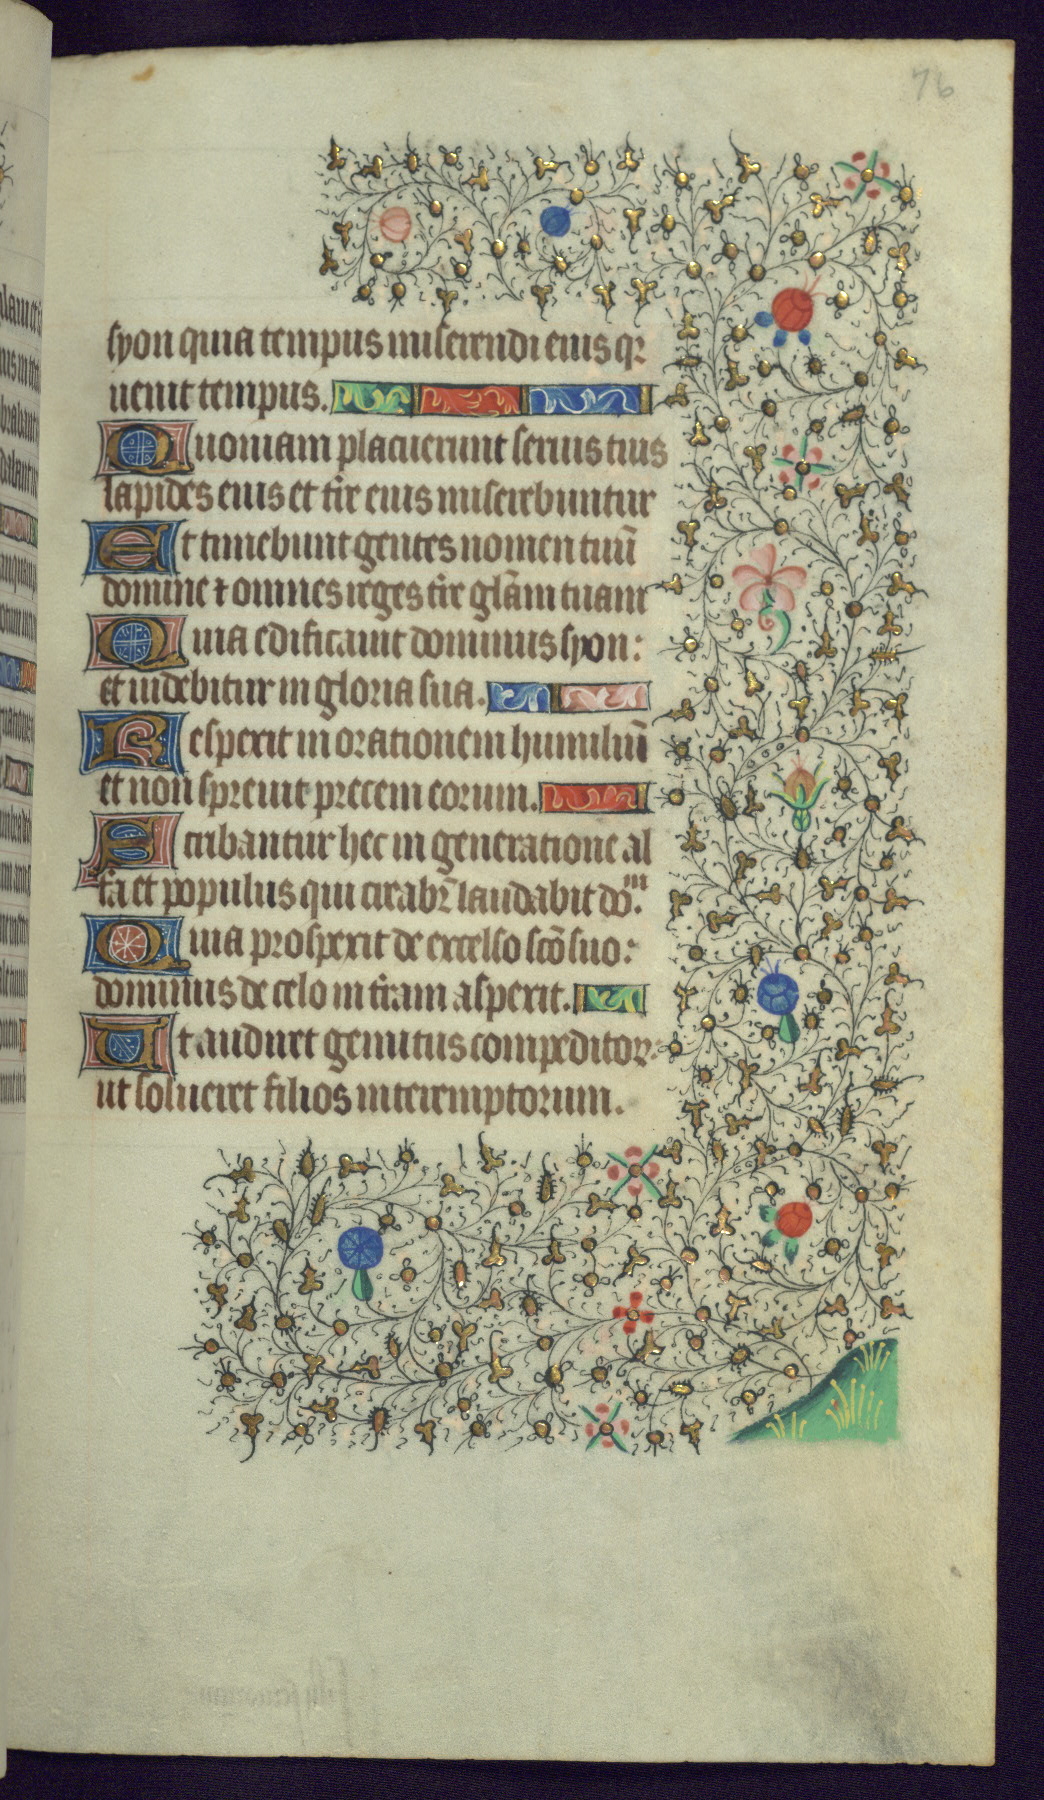 76
syon quia tempus miserendi eius qr
uenit tempus.
Quoniam placuerunt seruis tuis
lapides eius et tr̄e eius miserebuntur
Et timebunt gentes nomen tuū
domine ⁊ omnes reges tr̄e glām tuam
Quia edificauit dominus syon:
et uidebitur in gloria sua.
Respexit in orationem humiliū
et non spreuit precem eorum.
Scribantur hec in generatione al
tr̄a et populus qui creabr̄ laudabit dōm.
Quia prospexit de excelso scō suo:
dominus de celo in tr̄am aspexit.
Ut audiret gemitus compeditoꝝ:
ut solueret filios interemptorum.